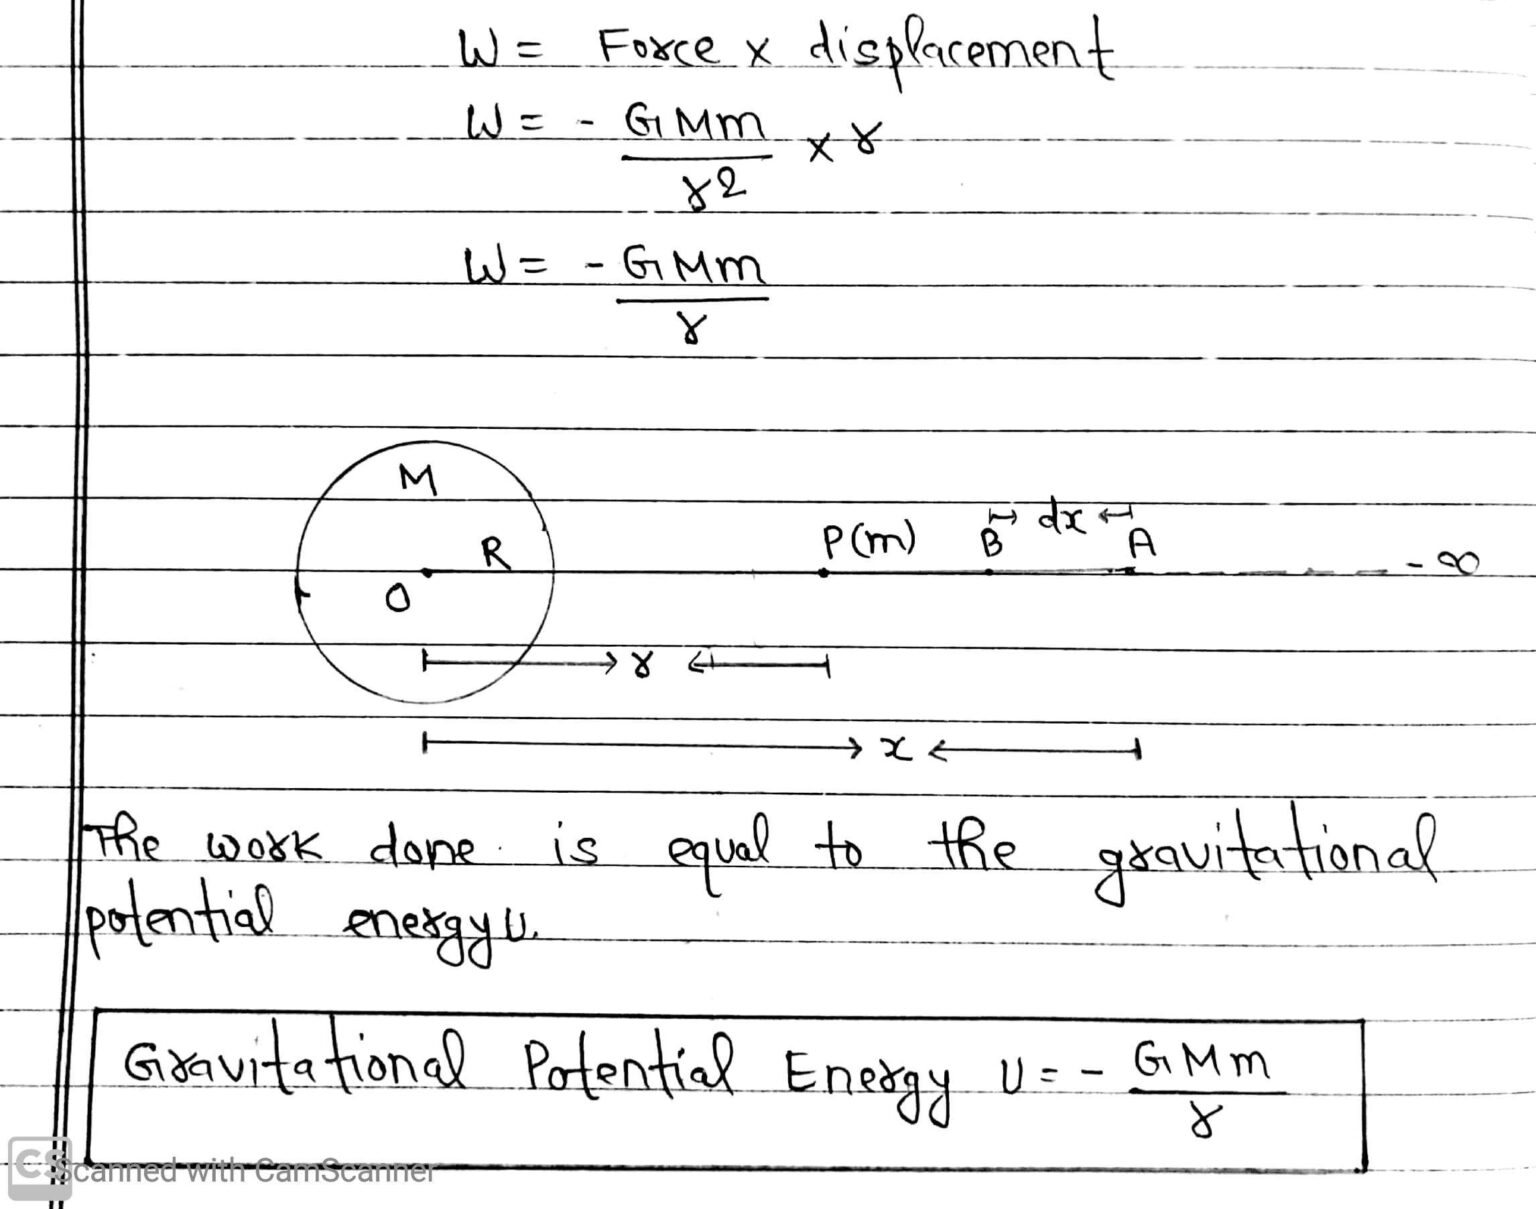 W = Force x displacement
W = - GMm x r
r2
W = - GMm
r
M
P(m) B dx A
R
- ∞
O
r
x
The work done is equal to the gravitational
potential energy U.
Gravitational Potential Energy U = - GMm
r
CS Scanned with CamScanner